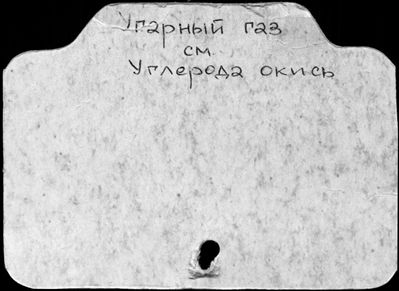 Угарный газ
см.
Углерода окись